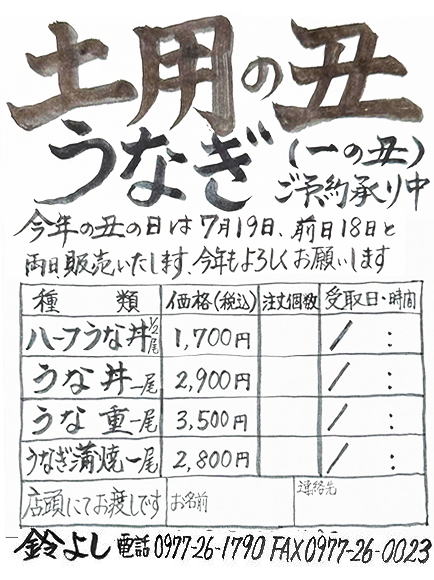 土用の丑
うなぎ
(一の丑)
ご予約承り中
今年の丑の日は7月19日、前日18日と
両日販売いたします、今年もよろしくお願いします
種類 価格(税込) 注文個数 受取日・時間
ハーフうな丼 1/2尾 1,700円 / :
うな丼 一尾 2,900円 / :
うな重 一尾 3,500円 / :
うなぎ蒲焼 一尾 2,800円 / :
店頭にてお渡しです お名前 連絡先
鈴よし 電話 0977-26-1790 FAX 0977-26-0023